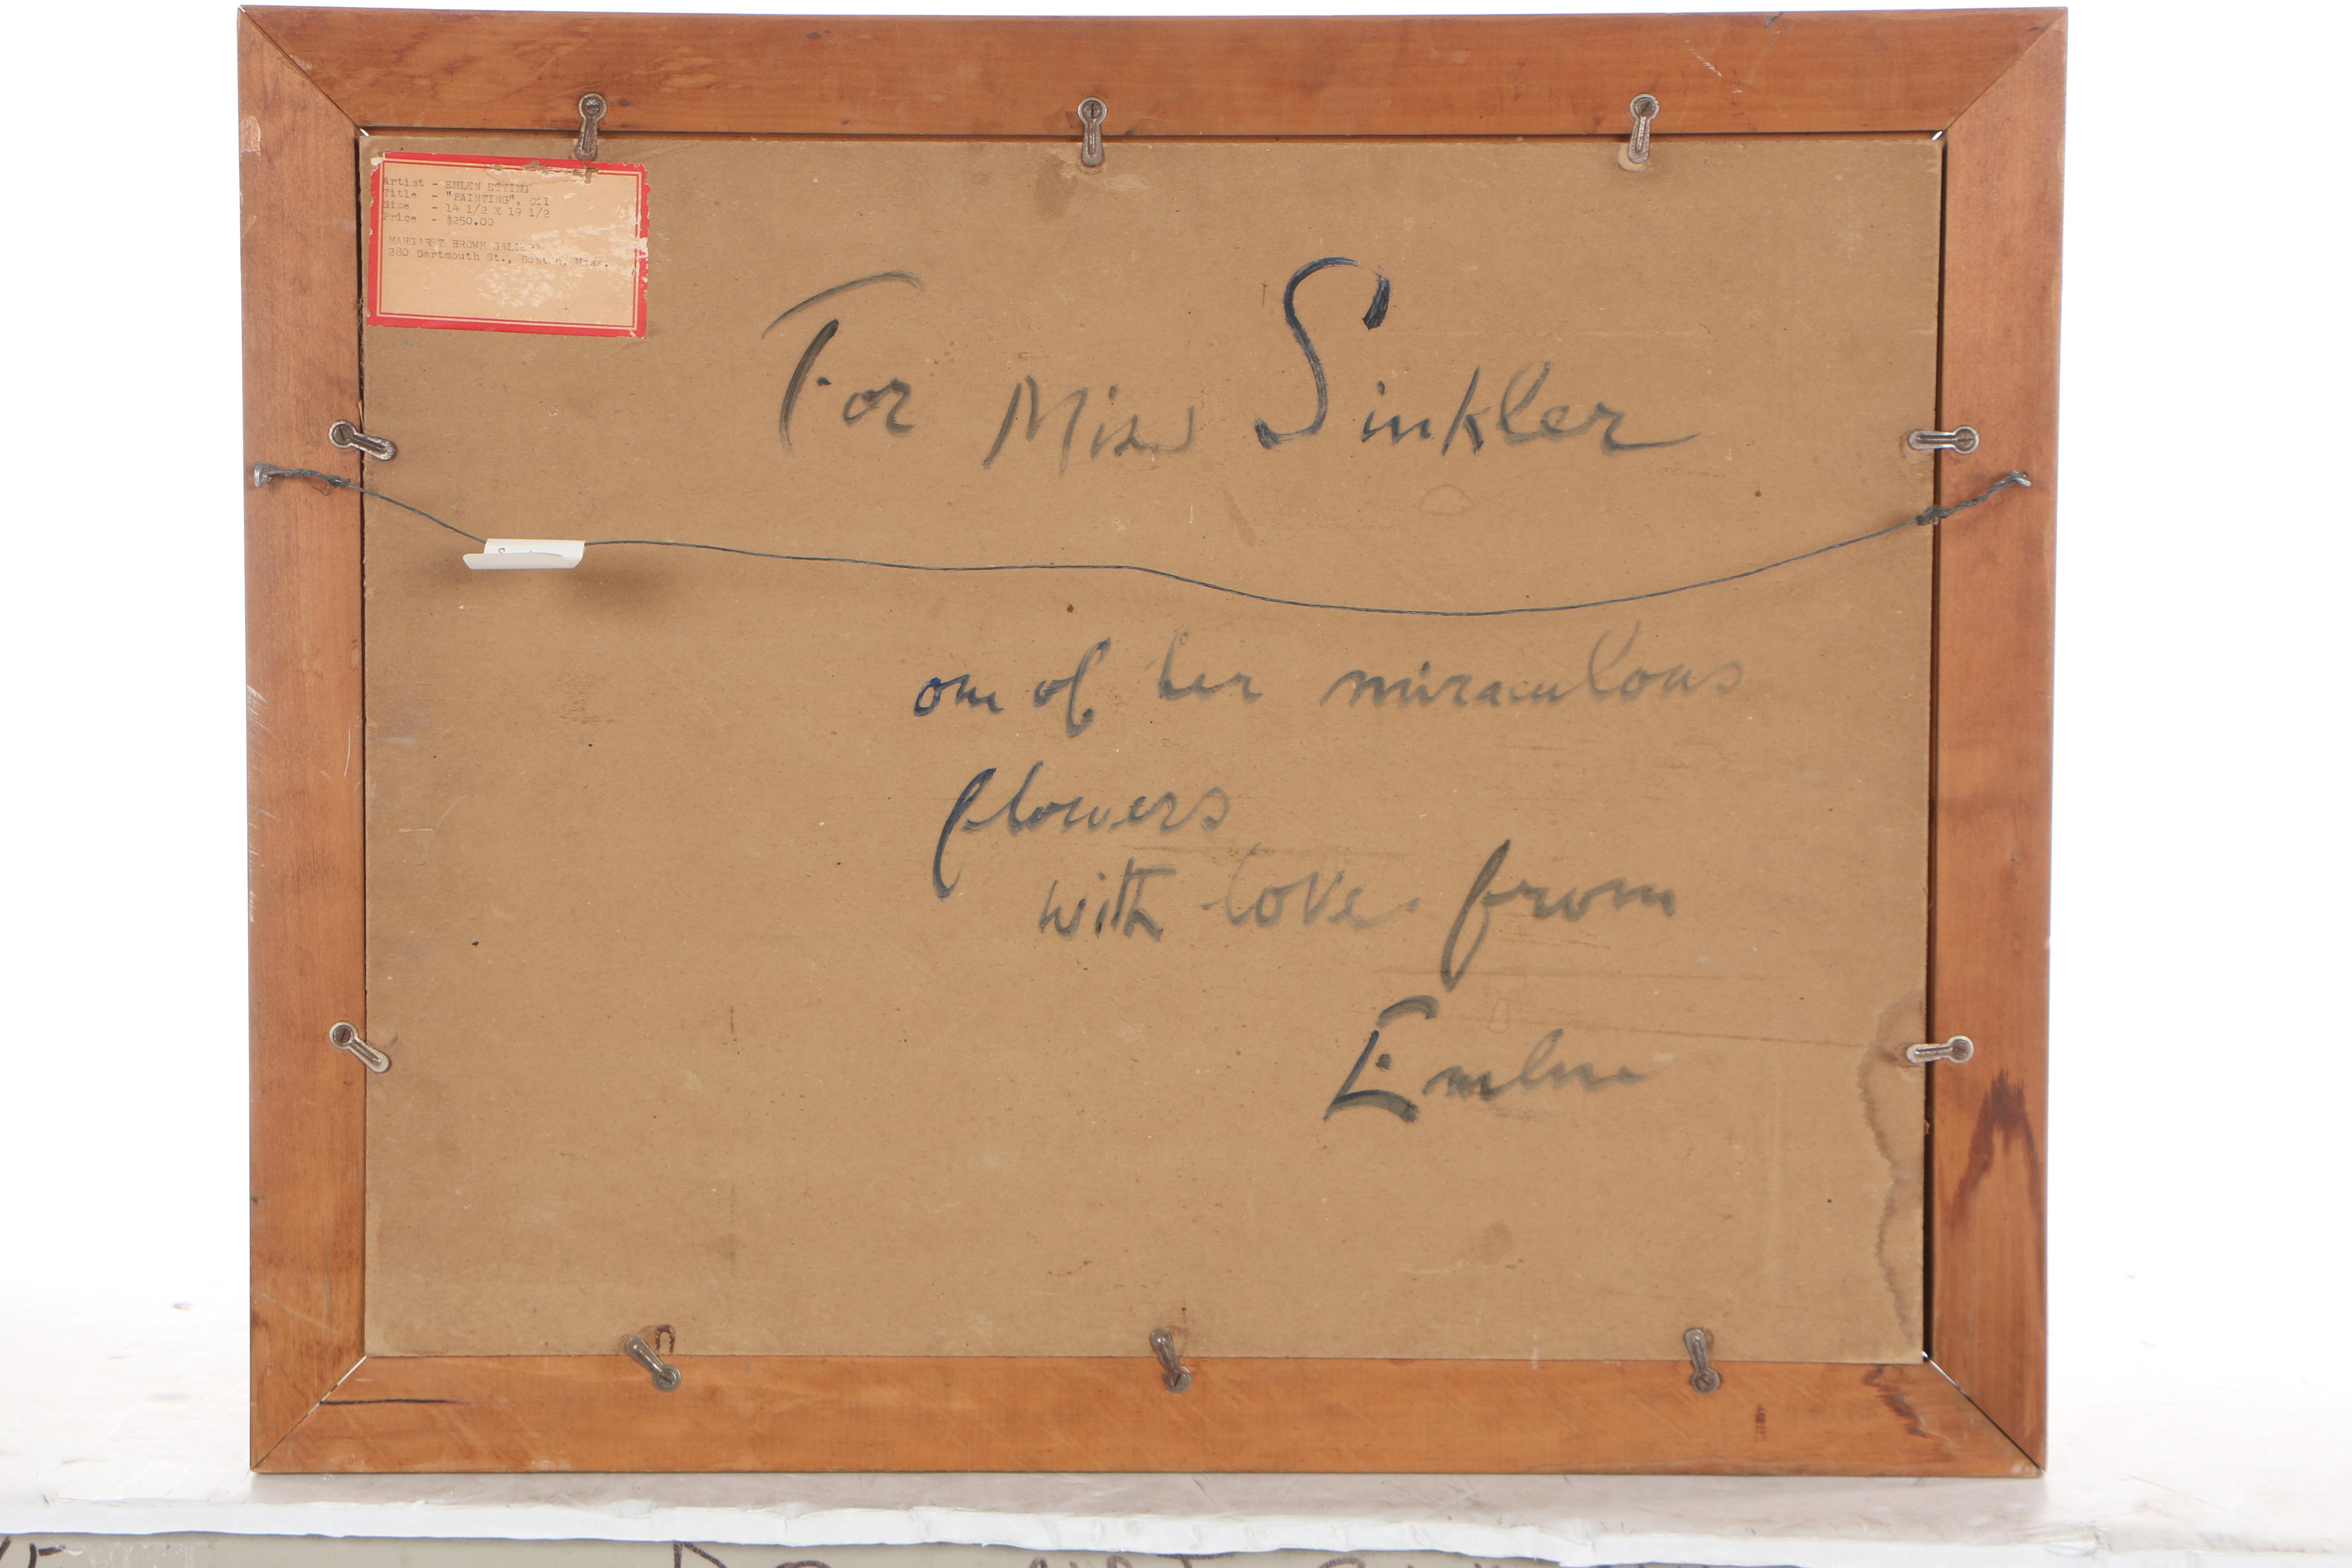 Artist - EMLEN ETTING
Title - "PAINTING", Oil
Size - 14 1/2 X 19 1/2
Price - $250.00
MARGARET BROWN GALLERY
280 Dartmouth St., Boston, Mass.
For Miss Sinkler
one of her miraculous
flowers
with love from
Emlen